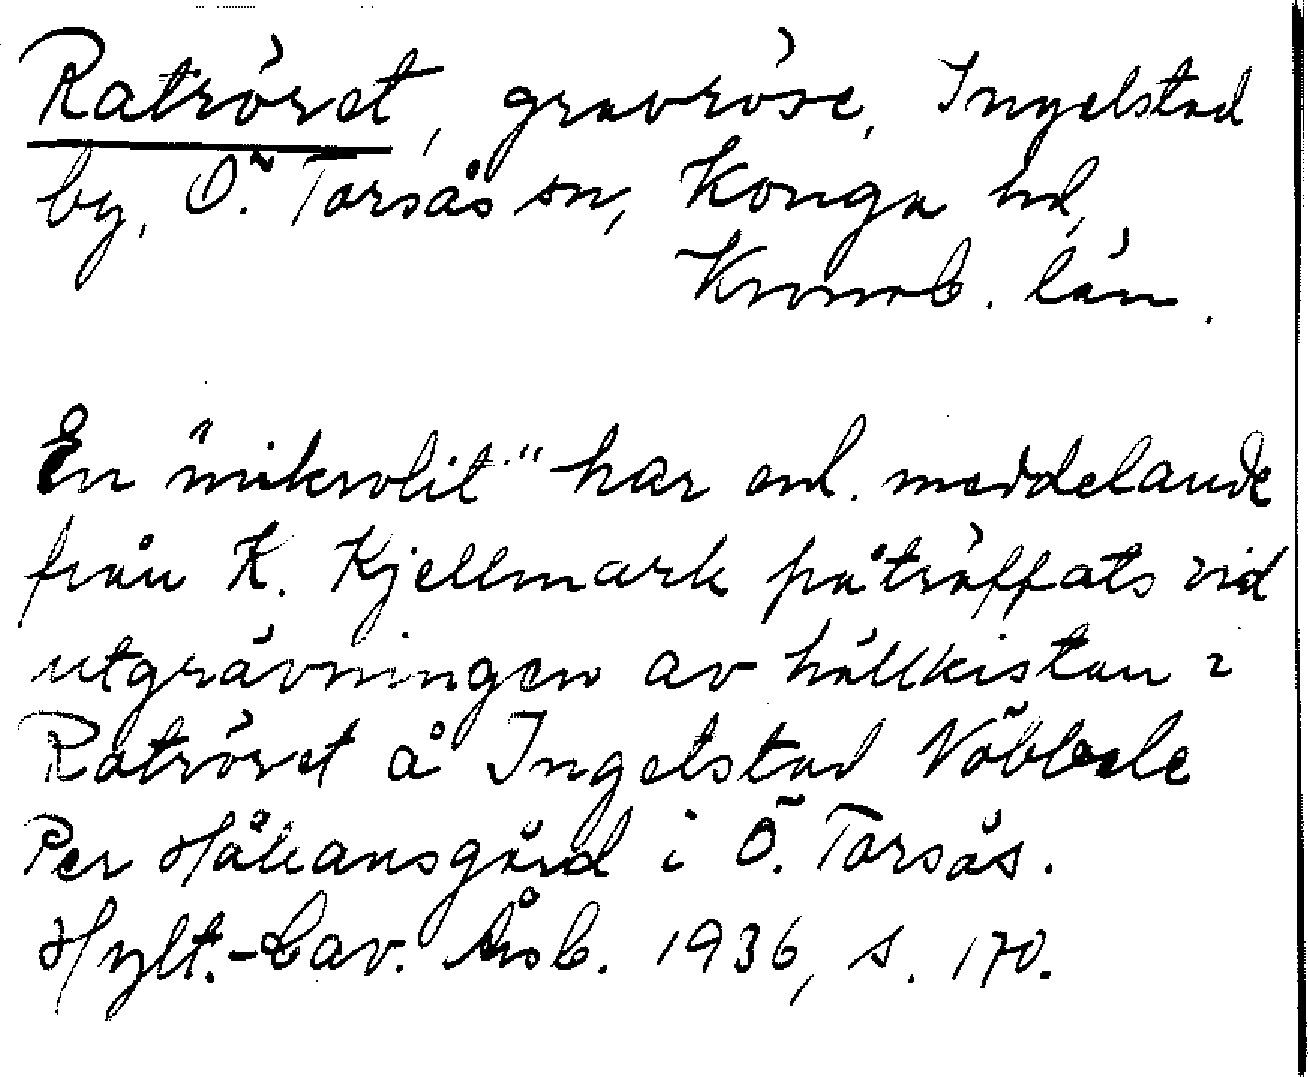 Raträret, gravröse, Ingelstad
by, Ö. Torsås sn, Konga hd,
Kronob. län.
En "mikrolit" har enl. meddelande
från K. Kjellmark påträffats vid
utgrävningen av hällkistan i
Ratröret å Ingelstad Nöbbele
Per Håkansgård i Ö. Torsås.
Hylt.-Cav. Årsb. 1936, s. 170.